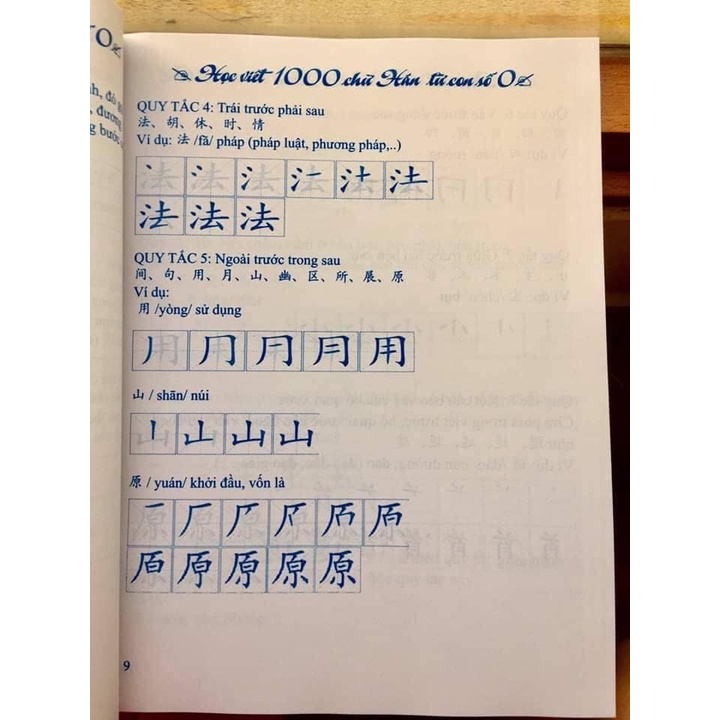 Học viết 1000 chữ Hán từ con số 0
QUY TẮC 4: Trái trước phải sau
法、胡、休、时、情
Ví dụ: 法 /fǎ/ pháp (pháp luật, phương pháp,..)
法
法 法 法
QUY TẮC 5: Ngoài trước trong sau
间、句、用、月、山、幽、区、所、展、原
Ví dụ:
用 /yòng/ sử dụng
用
山 / shān/ núi
山 山 山
原 / yuán/ khởi đầu, vốn là
原 原
9